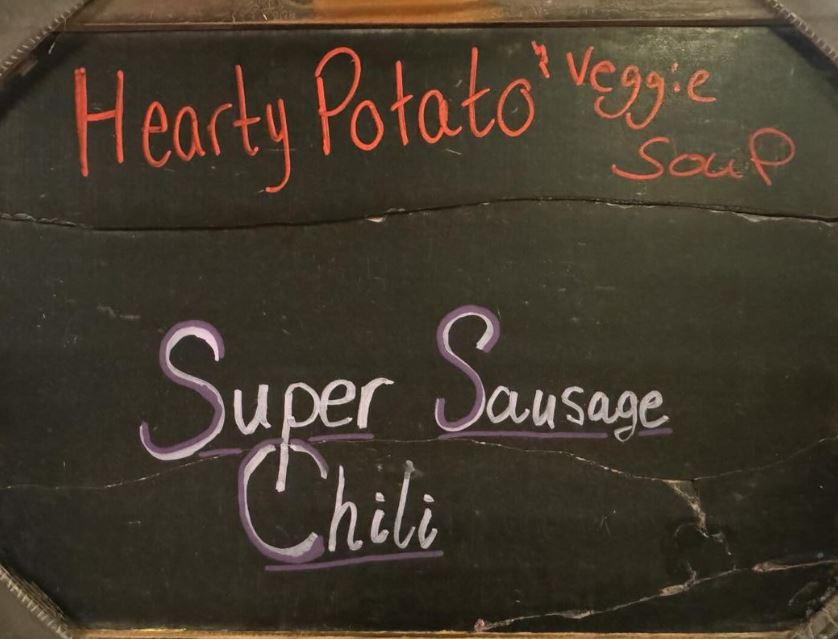 Hearty Potato & Veggie
Soup
Super Sausage
Chili